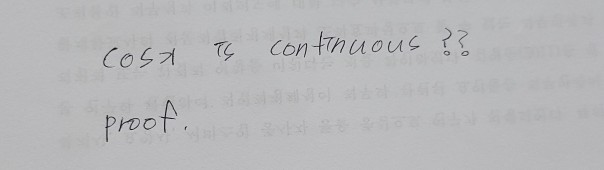 cosx is continuous ??
proof.